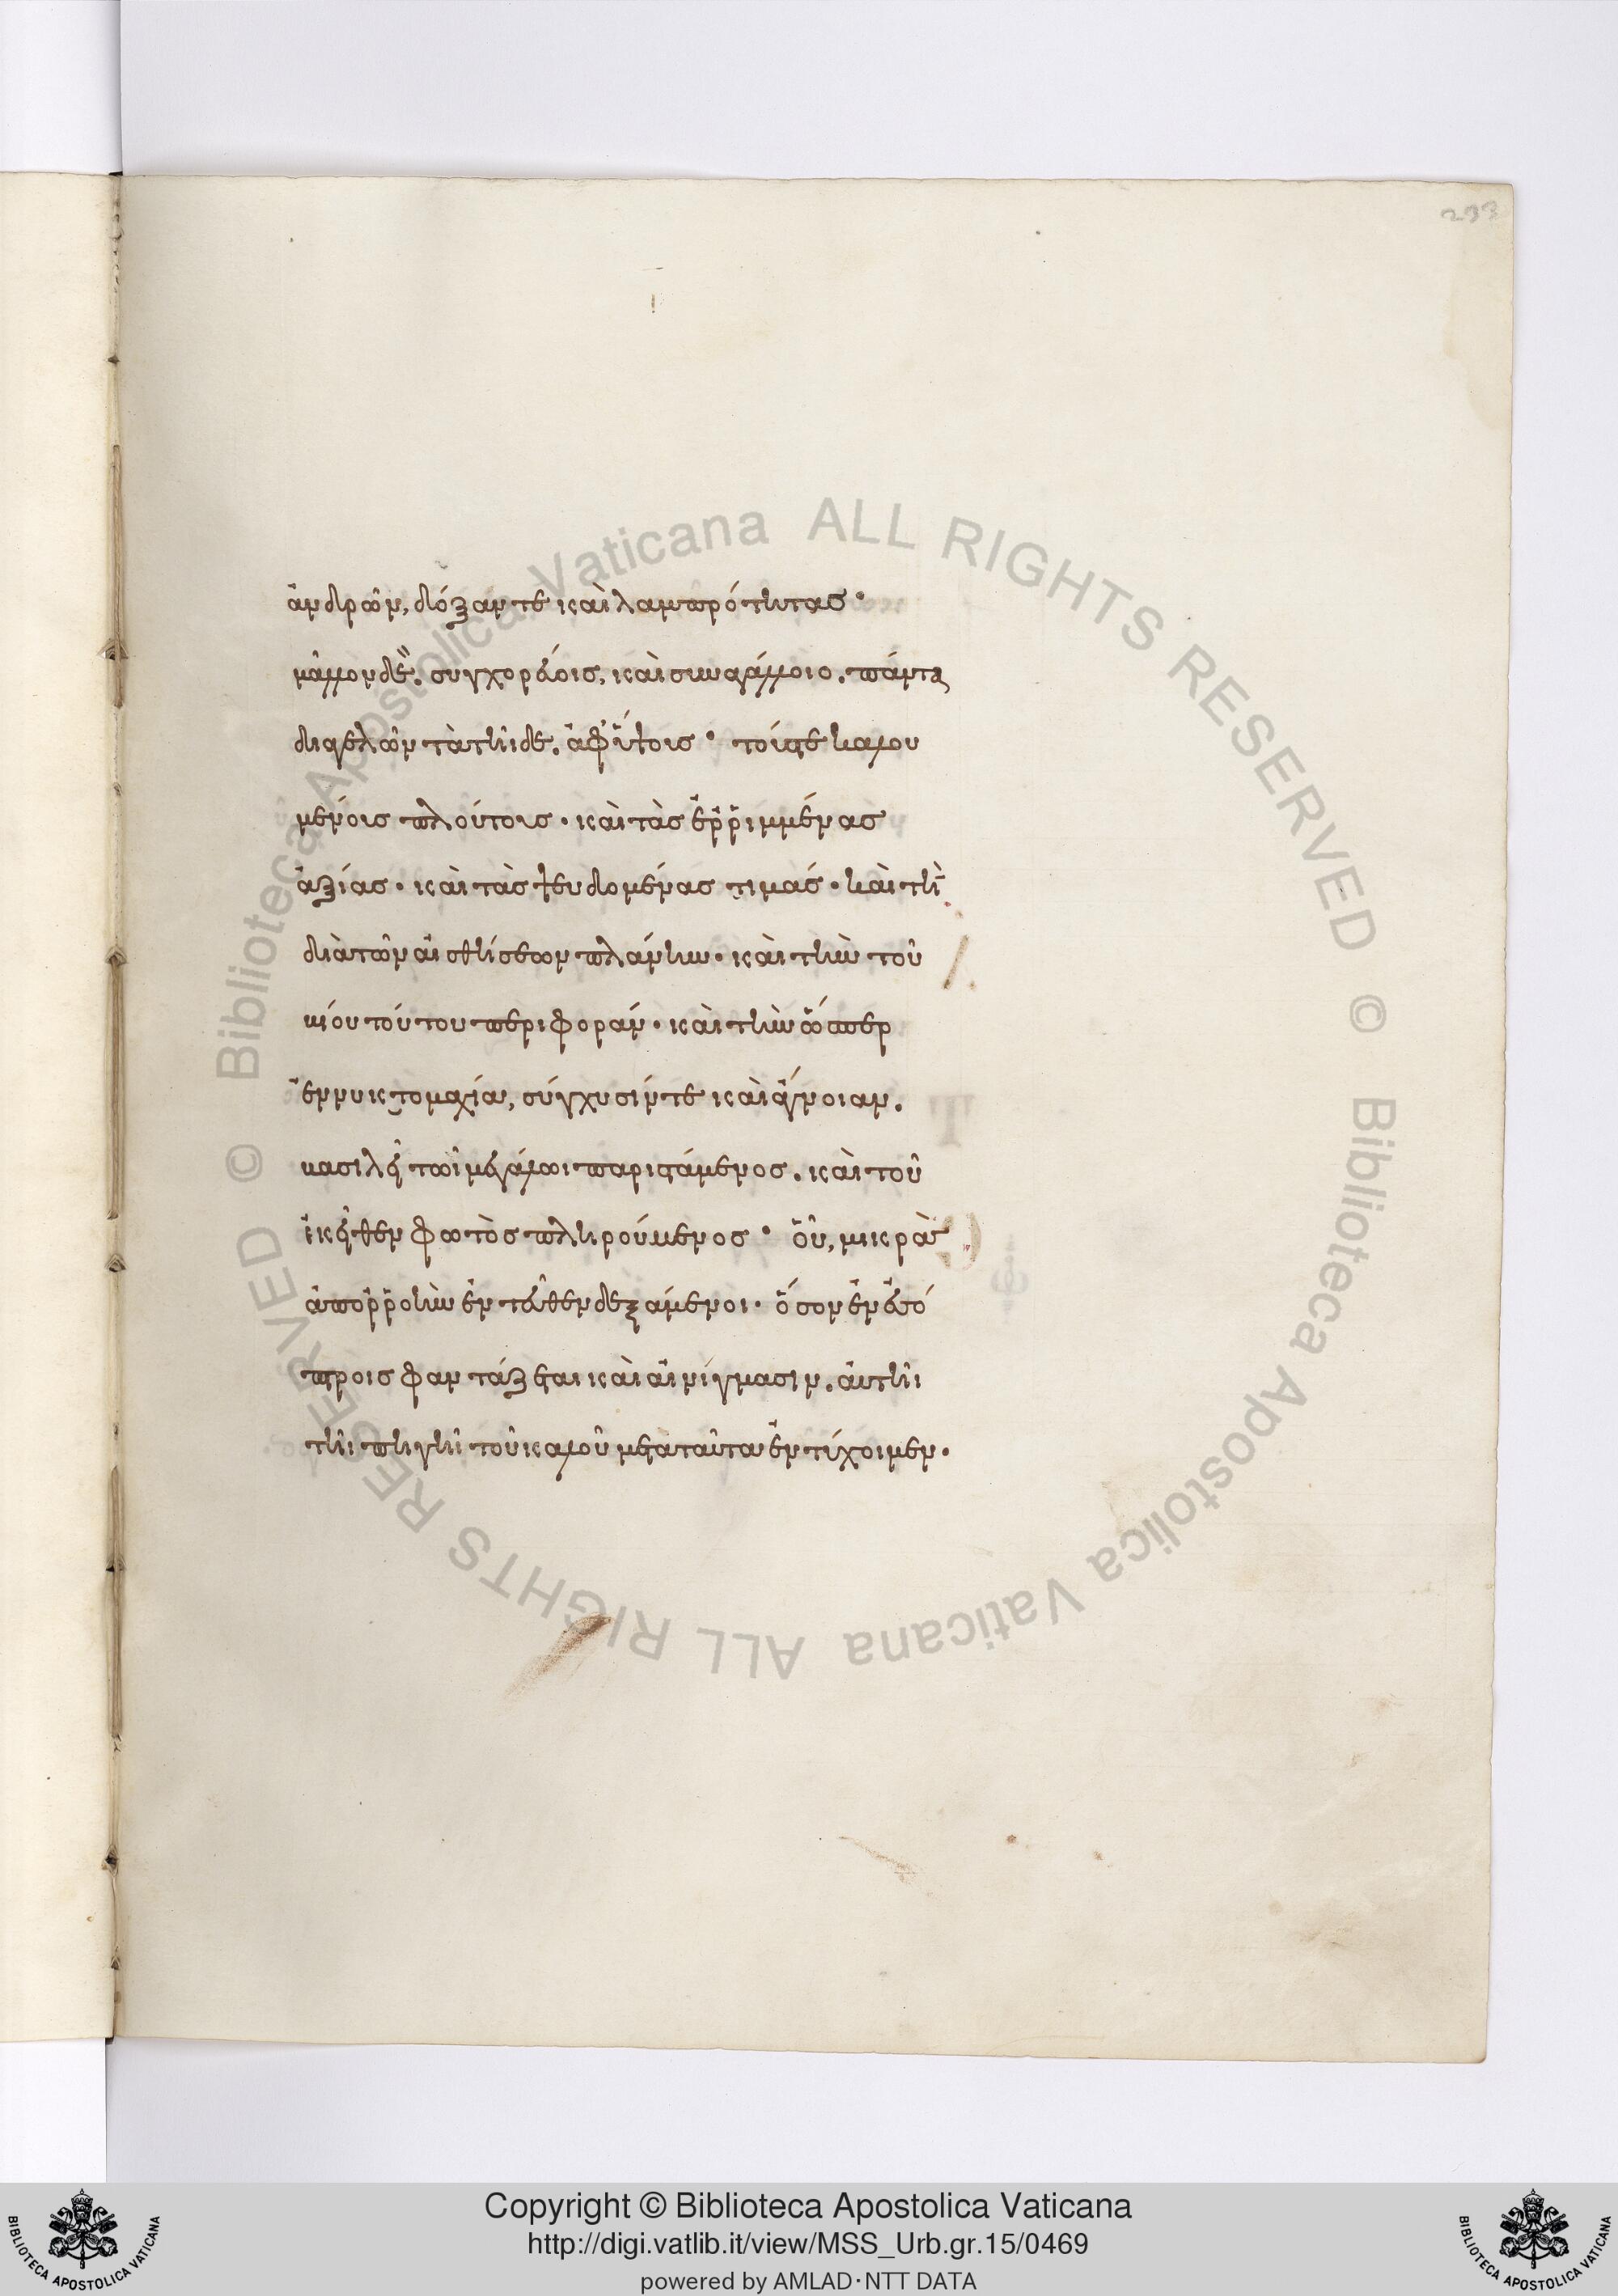 233
ἀνδρῶν, δόξαν τε καὶ λαμπρότητας·
μᾶλλον δὲ. συγχορεύοις, καὶ συναγάλλοιο. πάντα
διαγελῶν τὰ τῆιδε. ἀφ' ὕψους· τούς τε καλου
μένους πλούτους· καὶ τὰς ἐρριμμένας
ἀξίας· καὶ τὰς ψευδομένας τιμάς· καὶ τὴν
διὰ τῶν αἰσθήσεων πλάνην· καὶ τὴν τοῦ
βίου τούτου περιφοράν· καὶ τὴν ὥσπερ
ἐν νυκτομαχία, σύγχυσίν τε καὶ ἄγνοιαν.
βασιλεῖ τῶι μεγάλωι παριστάμενος. καὶ τοῦ
ἐκεῖθεν φωτὸς πληρούμενος· οὗ, μικρὰν
ἀπορροὴν ἐντεῦθεν δεξάμενοι· ὅσον ἐν ἐσό
πτροις φαντάζεσθαι καὶ αἰνίγμασιν. αὐτῆι
τῆι πηγῆι τοῦ καλοῦ μετὰ ταῦτα ἐντύχοιμεν.
© Biblioteca Apostolica Vaticana ALL RIGHTS RESERVED
© Biblioteca Apostolica Vaticana ALL RIGHTS RESERVED
BIBLIOTECA APOSTOLICA VATICANA
Copyright © Biblioteca Apostolica Vaticana
http://digi.vatlib.it/view/MSS_Urb.gr.15/0469
powered by AMLAD·NTT DATA
BIBLIOTECA APOSTOLICA VATICANA